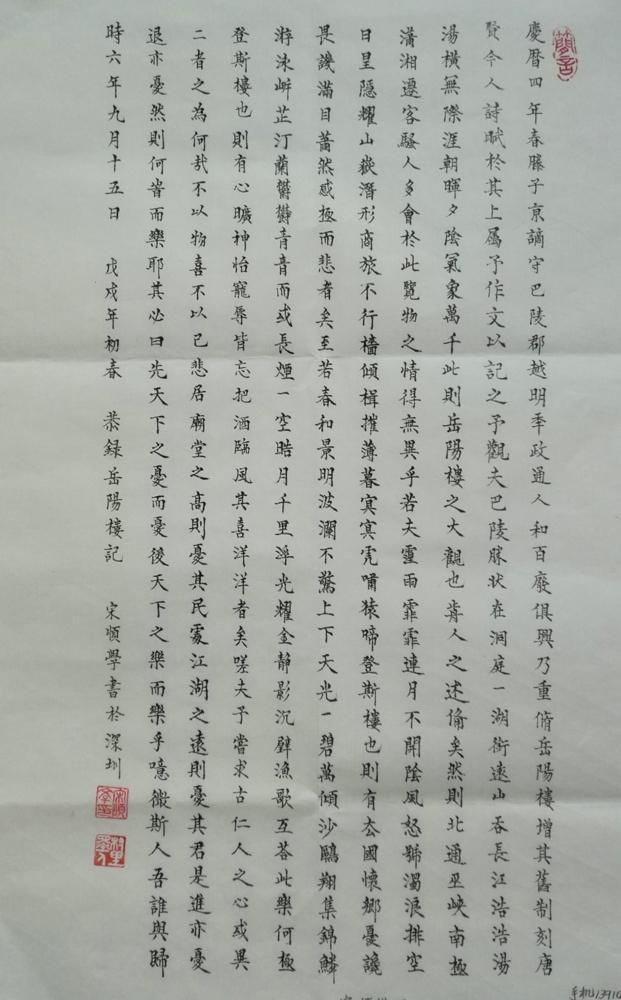 慶曆四年春滕子京謫守巴陵郡越明年政通人和百廢俱興乃重脩岳陽樓增其舊制刻唐
賢今人詩賦於其上屬予作文以記之予觀夫巴陵勝狀在洞庭一湖銜遠山吞長江浩浩湯
湯橫無際涯朝暉夕陰氣象萬千此則岳陽樓之大觀也前人之述備矣然則北通巫峽南極
瀟湘遷客騷人多會於此覽物之情得無異乎若夫霪雨霏霏連月不開陰風怒號濁浪排空
日星隱耀山嶽潛形商旅不行檣傾楫摧薄暮冥冥虎嘯猿啼登斯樓也則有去國懷鄉憂讒
畏譏滿目蕭然感極而悲者矣至若春和景明波瀾不驚上下天光一碧萬傾沙鷗翔集錦鱗
游泳岸芷汀蘭欝欝青青而或長煙一空皓月千里浮光耀金靜影沉璧漁歌互荅此樂何極
登斯樓也則有心曠神怡寵辱皆忘把酒臨風其喜洋洋者矣嗟夫予嘗求古仁人之心或異
二者之為何哉不以物喜不以己悲居廟堂之高則憂其民處江湖之遠則憂其君是進亦憂
退亦憂然則何時而樂耶其必曰先天下之憂而憂後天下之樂而樂乎噫微斯人吾誰與歸
時六年九月十五日 戊戌年初春 恭録岳陽樓記 宋順學書於深圳
手机13910